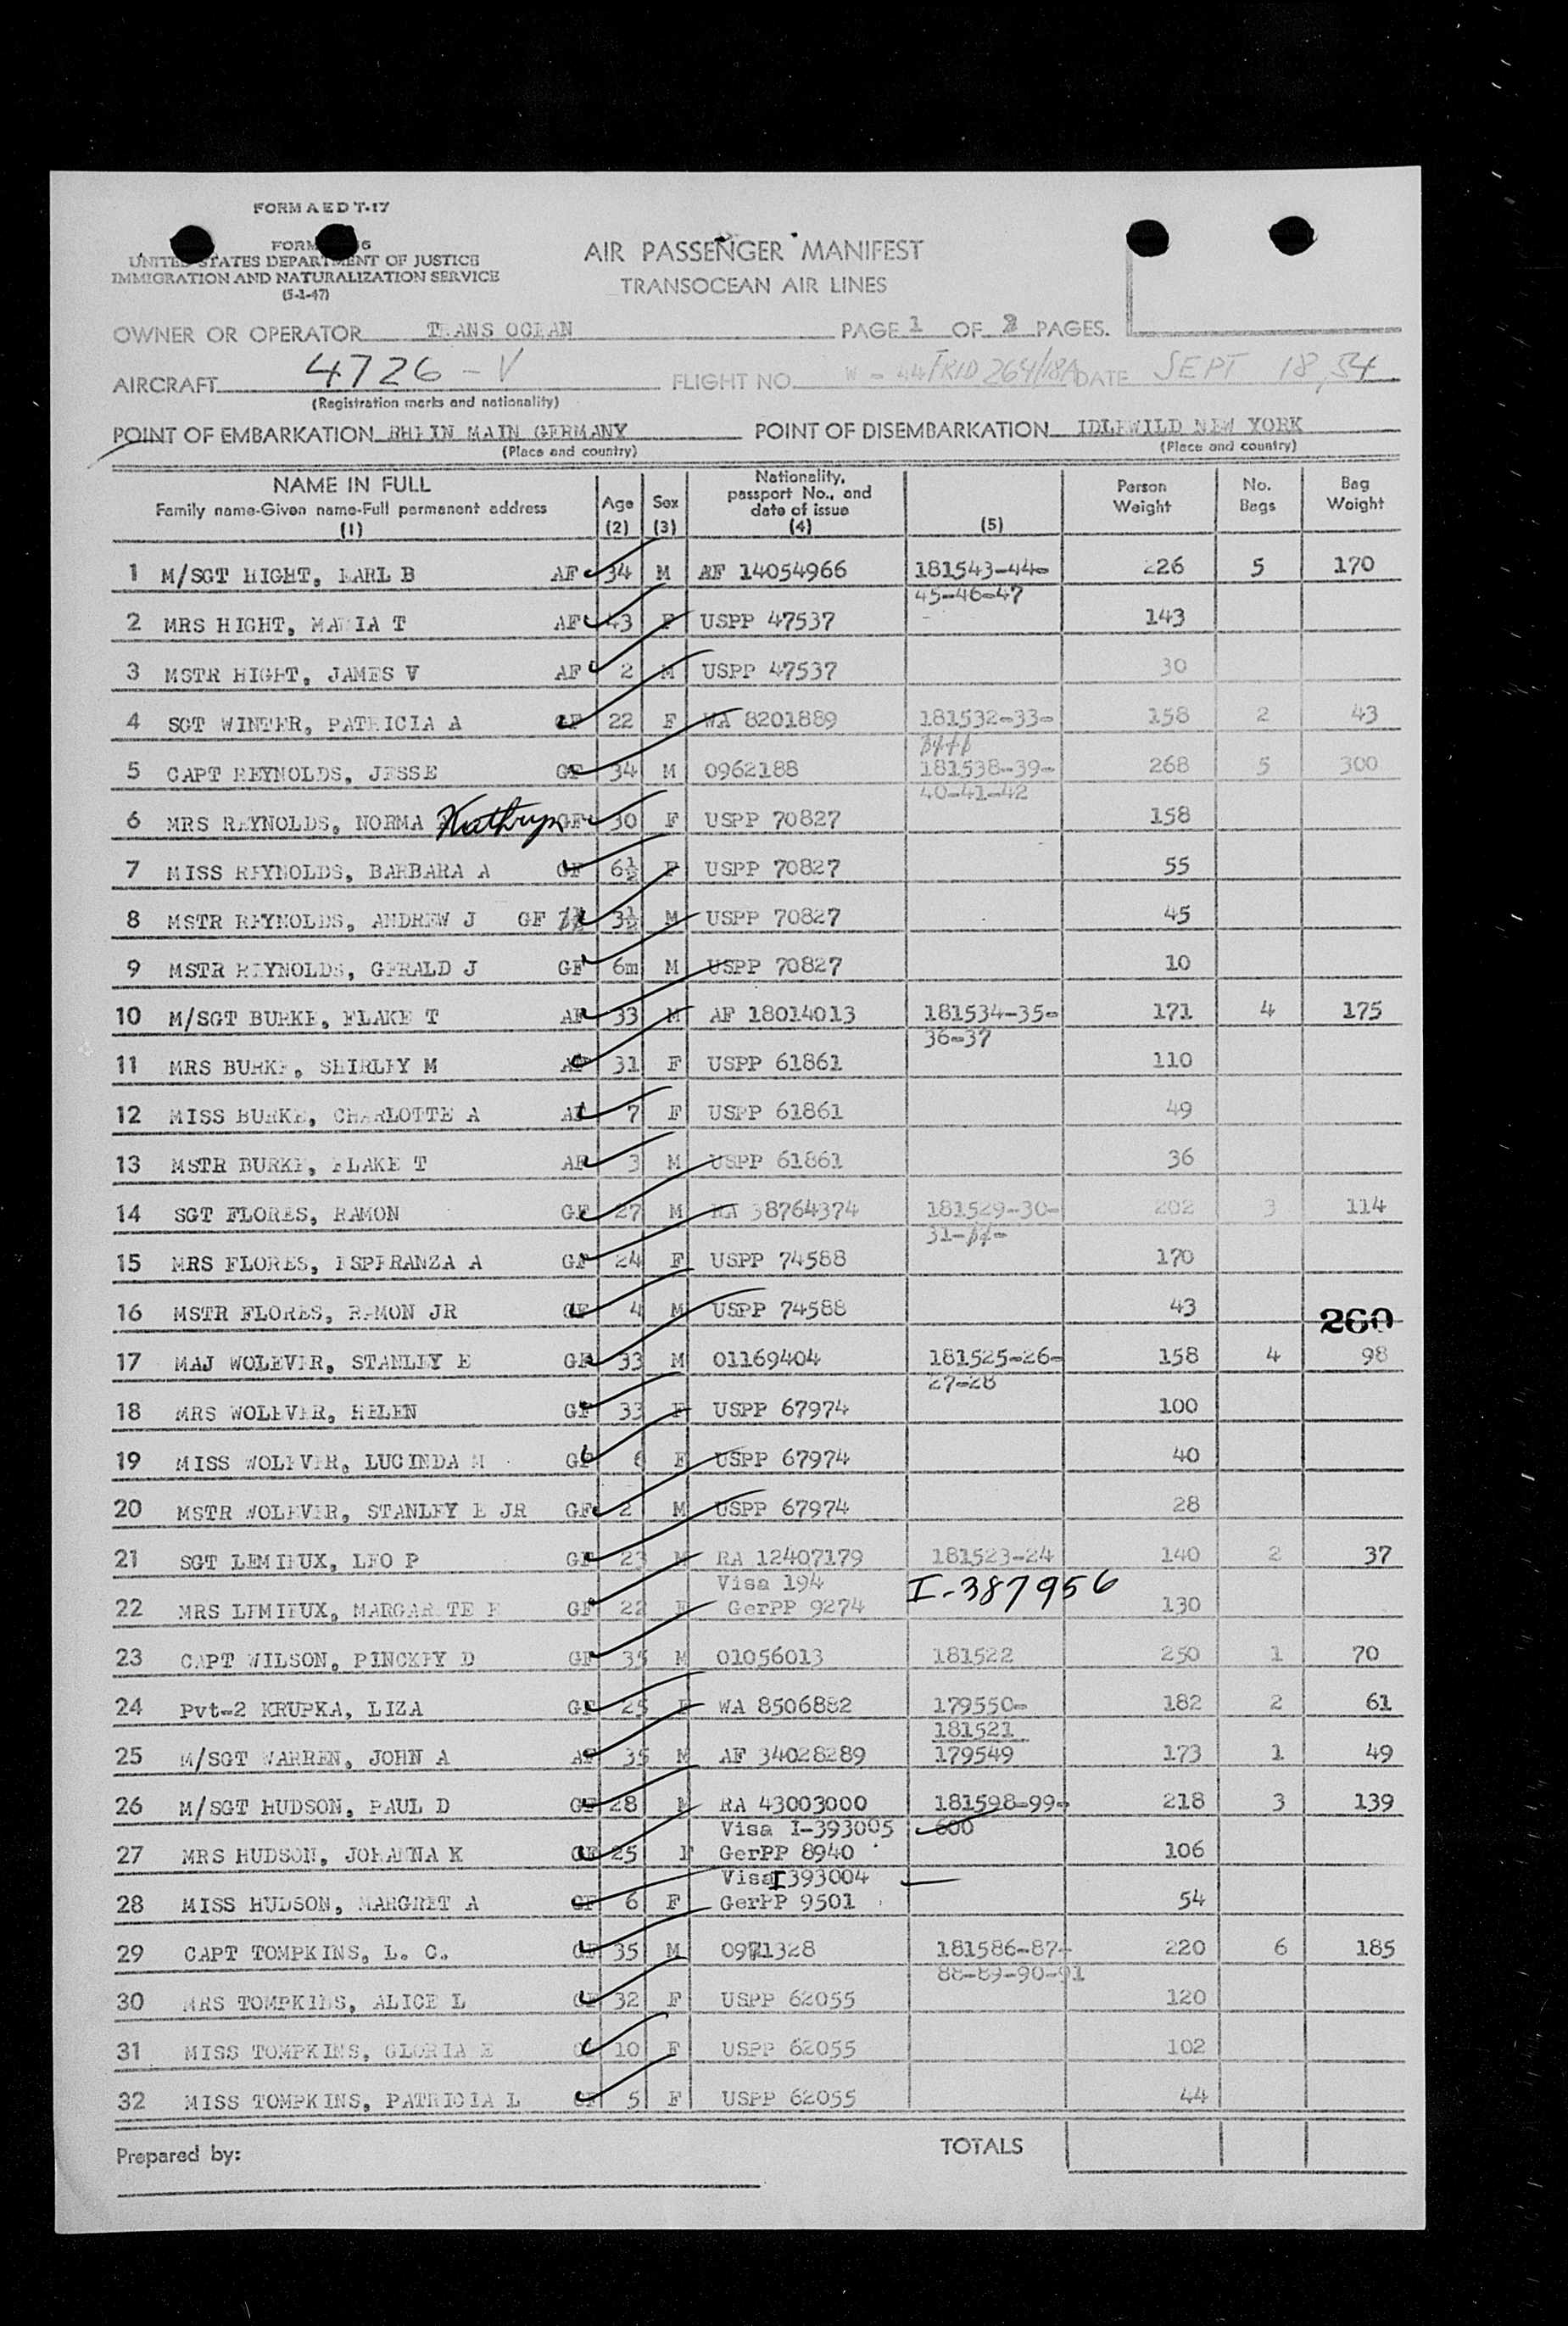 FORM A E D T-17
UNITED STATES DEPARTMENT OF JUSTICE
IMMIGRATION AND NATURALIZATION SERVICE
(5-1-47)
AIR PASSENGER MANIFEST
TRANSOCEAN AIR LINES
OWNER OR OPERATOR TRANS OCEAN PAGE 1 OF 2 PAGES.
AIRCRAFT 4726-V FLIGHT NO. DATE SEPT 18, 54
(Registration marks and nationality)
POINT OF EMBARKATION RHEIN MAIN GERMANY POINT OF DISEMBARKATION IDLEWILD NEW YORK
(Place and country) (Place and country)
NAME IN FULL Family name-Given name-Full permanent address (1) Age (2) Sex (3) Nationality, passport No., and date of issue (4) (5) Person Weight No. Bags Bag Weight
1 M/SGT HIGHT, EARL B AF 34 M AF 14054966 181543-44- 226 5 170
45-46-47
2 MRS HIGHT, MARIA T AF 43 F USPP 47537 143
3 MSTR HIGHT, JAMES V AF 2 M USPP 47537 30
4 SGT WINTER, PATRICIA A GF 22 F WA 8201889 181532-33- 158 2 43
5 CAPT REYNOLDS, JESSE GF 34 M 0962188 181538-39- 268 5 300
40-41-42
6 MRS REYNOLDS, NORMA Kathryn GF 30 F USPP 70827 158
7 MISS REYNOLDS, BARBARA A GF 6½ F USPP 70827 55
8 MSTR REYNOLDS, ANDREW J GF 3½ M USPP 70827 45
9 MSTR REYNOLDS, GERALD J GF 6m M USPP 70827 10
10 M/SGT BURKE, FLAKE T AF 33 M AF 18014013 181534-35- 171 4 175
36-37
11 MRS BURKE, SHIRLEY M AF 31 F USPP 61861 110
12 MISS BURKE, CHARLOTTE A AF 7 F USPP 61861 49
13 MSTR BURKE, FLAKE T AF 3 M USPP 61861 36
14 SGT FLORES, RAMON GF 27 M RA 38764374 181529-30- 202 3 114
31-
15 MRS FLORES, ESPERANZA A GF 24 F USPP 74588 170
16 MSTR FLORES, RAMON JR GF 4 M USPP 74588 43
260
17 MAJ WOLEVER, STANLEY E GF 33 M 01169404 181525-26- 158 4 98
27-28
18 MRS WOLEVER, HELEN GF 33 F USPP 67974 100
19 MISS WOLEVER, LUCINDA M GF 6 F USPP 67974 40
20 MSTR WOLEVER, STANLEY E JR GF 2 M USPP 67974 28
21 SGT LEMIEUX, LEO P GF 23 M RA 12407179 181523-24 140 2 37
Visa 194 I-387956
22 MRS LEMIEUX, MARGARETE F GF 22 F GerPP 9274 130
23 CAPT WILSON, PINCKEY D GF 35 M 01056013 181522 250 1 70
24 Pvt-2 KRUPKA, LIZA GF 25 F WA 8506882 179550- 182 2 61
181521
25 M/SGT WARREN, JOHN A AF 35 M AF 34028289 179549 173 1 49
26 M/SGT HUDSON, PAUL D GF 28 M RA 43003000 181598-99- 218 3 139
Visa I-393005 600
27 MRS HUDSON, JOHANNA K GF 25 F GerPP 8940 106
Visa I393004
28 MISS HUDSON, MARGRET A GF 6 F GerPP 9501 54
29 CAPT TOMPKINS, L. C. GF 35 M 0971328 181586-87- 220 6 185
88-89-90-91
30 MRS TOMPKINS, ALICE L GF 32 F USPP 62055 120
31 MISS TOMPKINS, GLORIA E GF 10 F USPP 62055 102
32 MISS TOMPKINS, PATRICIA L GF 5 F USPP 62055 44
Prepared by: TOTALS